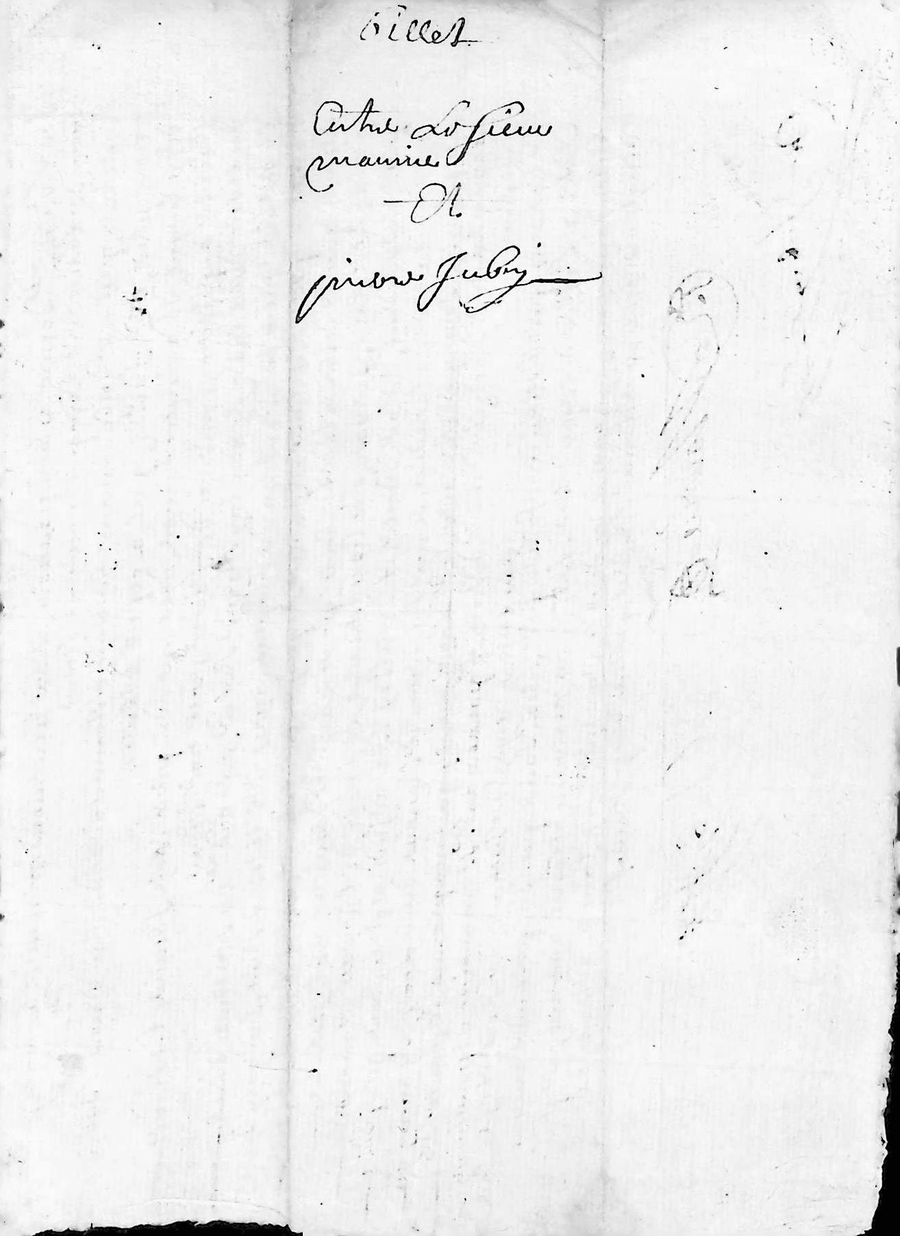 Billet
Entre Le Sieur
maurice
Et
pierre Juby